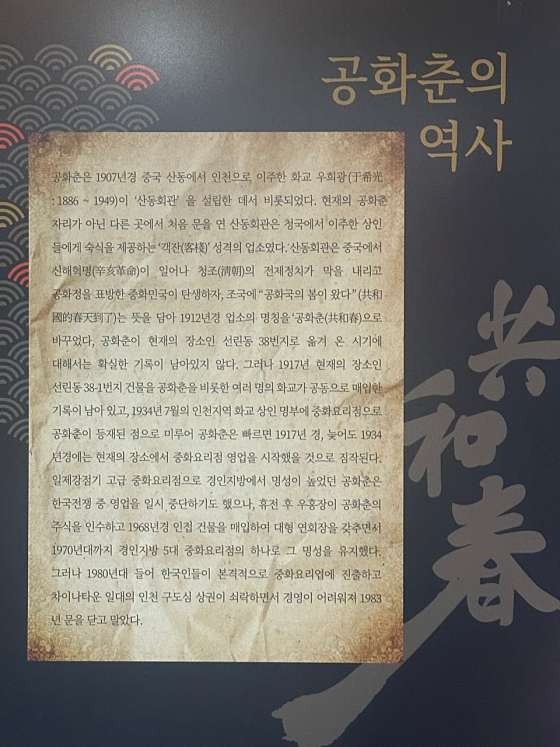 공화춘의
역사
공화춘은 1907년경 중국 산동에서 인천으로 이주한 화교 우희광(于希光
: 1886 ~ 1949)이 ‘산동회관’ 을 설립한 데서 비롯되었다. 현재의 공화춘
자리가 아닌 다른 곳에서 처음 문을 연 산동회관은 청국에서 이주한 상인
들에게 숙식을 제공하는 ‘객잔(客棧)’ 성격의 업소였다. 산동회관은 중국에서
신해혁명(辛亥革命)이 일어나 청조(淸朝)의 전제정치가 막을 내리고
공화정을 표방한 중화민국이 탄생하자, 조국에 “공화국의 봄이 왔다” (共和
國的春天到了)는 뜻을 담아 1912년경 업소의 명칭을 ‘공화춘(共和春)으로
바꾸었다, 공화춘이 현재의 장소인 선린동 38번지로 옮겨 온 시기에
대해서는 확실한 기록이 남아있지 않다. 그러나 1917년 현재의 장소인
선린동 38-1번지 건물을 공화춘을 비롯한 여러 명의 화교가 공동으로 매입한
기록이 남아 있고, 1934년 7월의 인천지역 화교 상인 명부에 중화요리점으로
공화춘이 등재된 점으로 미루어 공화춘은 빠르면 1917년 경, 늦어도 1934
년경에는 현재의 장소에서 중화요리점 영업을 시작했을 것으로 짐작된다.
일제강점기 고급 중화요리점으로 경인지방에서 명성이 높았던 공화춘은
한국전쟁 중 영업을 일시 중단하기도 했으나, 휴전 후 우홍장이 공화춘의
주식을 인수하고 1968년경 인접 건물을 매입하여 대형 연회장을 갖추면서
1970년대까지 경인지방 5대 중화요리점의 하나로 그 명성을 유지했다.
그러나 1980년대 들어 한국인들이 본격적으로 중화요리업에 진출하고
차이나타운 일대의 인천 구도심 상권이 쇠락하면서 경영이 어려워져 1983
년 문을 닫고 말았다.
共和春